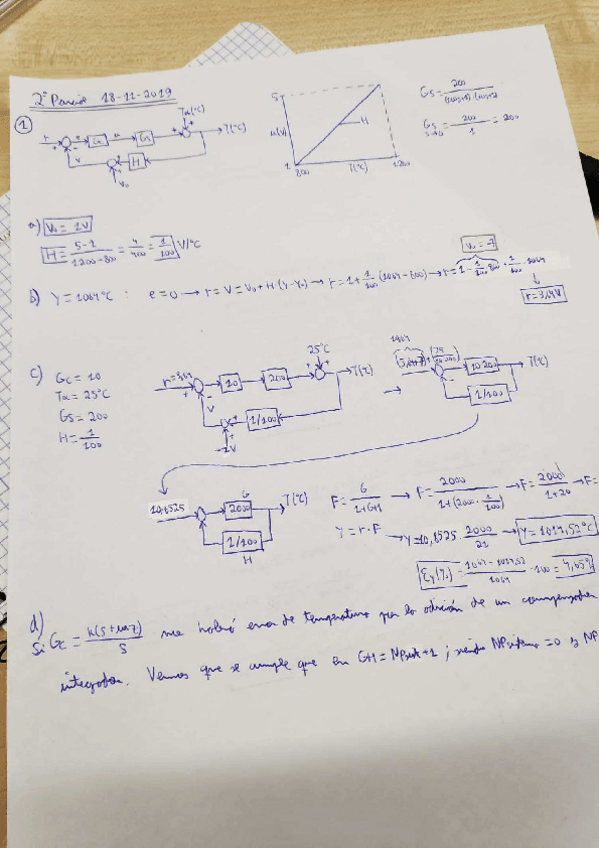 2º Parcial 18-11-2019
1
Ta(ºC)
r + e Gc u Gs + + T(ºC)
v H
V₀
5
u(V)
H
1
800 T(ºC) 1200
Gs = 200
Gs = 200/1 = 200
s→0
a) V₀ = 1V
H = 5-1/1200-800 = 4/400 = 1/100 V/ºC
V₀ = -7
b) Y = 1064ºC : e=0 → r = V = V₀ + H(Y-Y₀) → r = 1 + 1/100 (1064-800) → r = 1 - 1/100 800 + 1/100 · 1064
r = 3,64V
c) Gc = 10
Ta = 25ºC
Gs = 200
H = 1/100
r=3,64 + - 10 200 + + T(ºC)
25ºC
V 1/100
-7V
10,64
(3,64+7) + (25/10·200) 10·200 T(ºC)
1/100
10,6525 G 2000 T(ºC)
1/100
H
F = G/1+GH → F = 2000/1+(2000·1/100) → F = 2000/1+20 → F =
Y = r·F → Y = 10,6525 · 2000/21 → Y = 1014,52ºC
Ey(%) = 1064-1014,52/1064 · 100 = 4,65%
d) Si Gc = k(s+ )/s no habrá error de temperatura por la adición de un compensador
integrador. Vemos que se cumple que en GH = NPsist+1 ; siendo NPsistema = 0 y NP